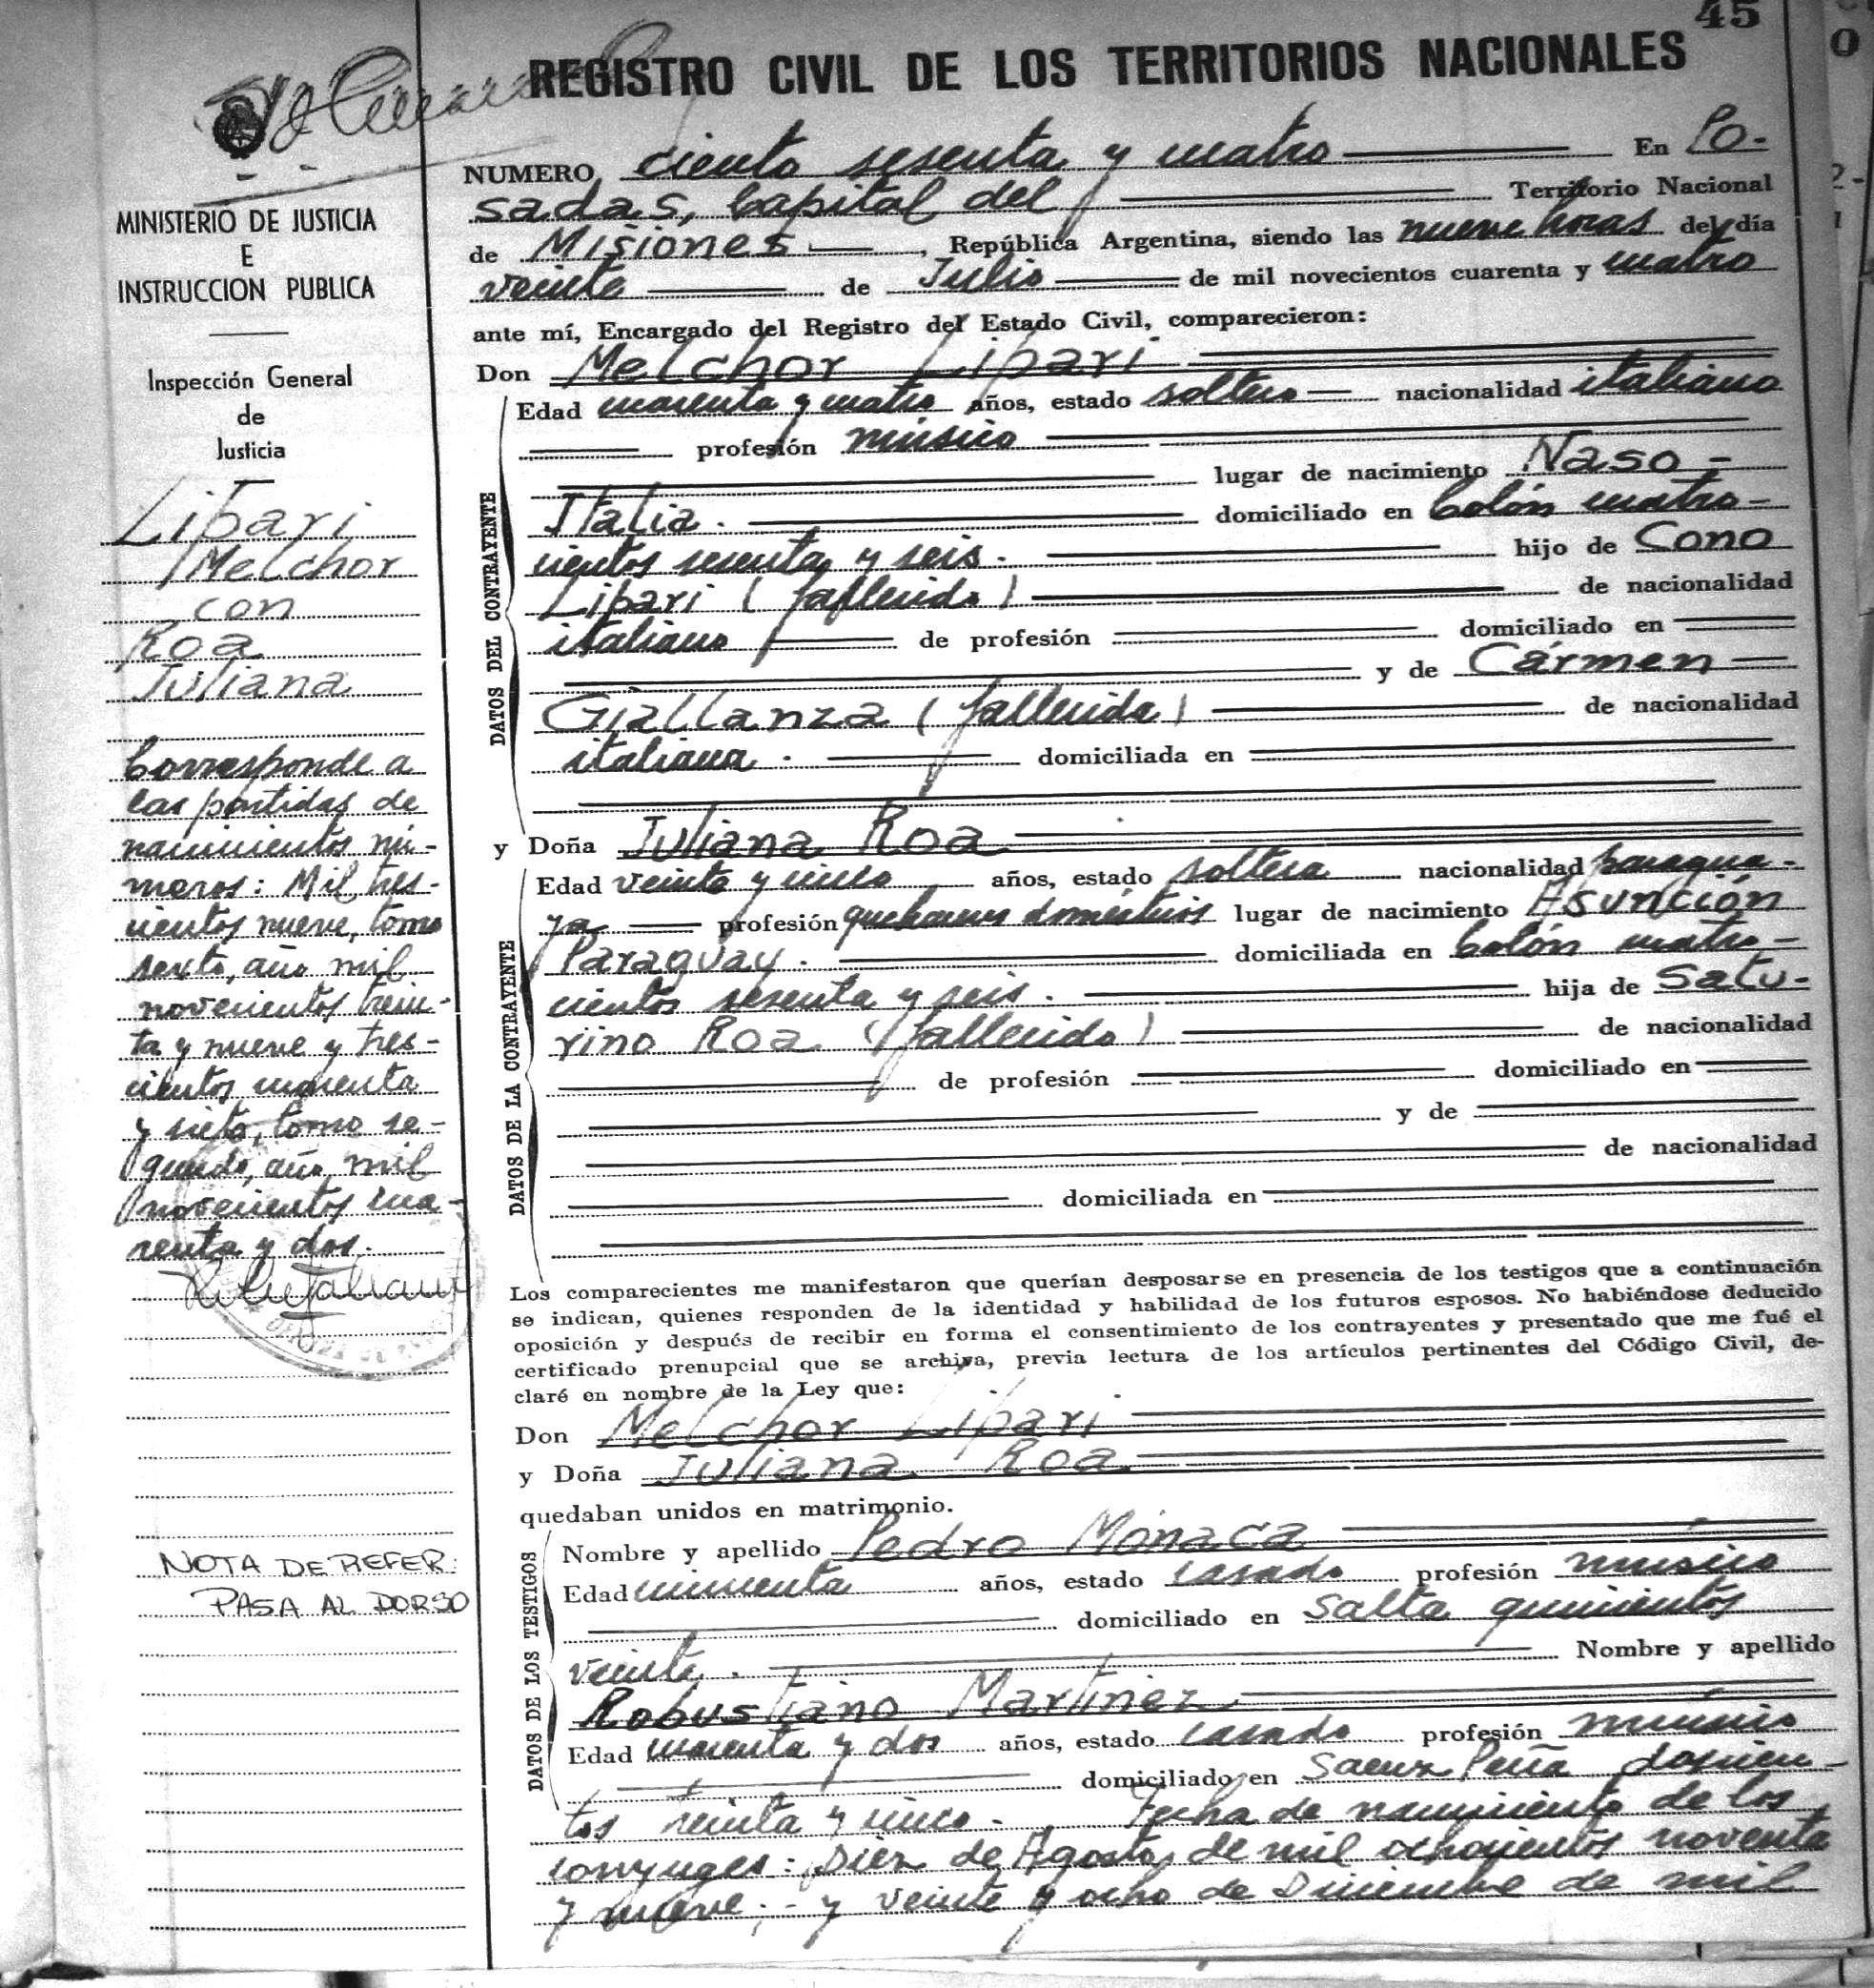 45
REGISTRO CIVIL DE LOS TERRITORIOS NACIONALES
MINISTERIO DE JUSTICIA
E
INSTRUCCION PUBLICA
Inspección General
de
Justicia
Lipari
Melchor
con
Roa
Juliana
Corresponde a
las partidas de
nacimientos nú-
meros: Mil tres-
cientos nueve, tomo
sexto, año mil
novecientos trein-
ta y nueve y tres-
cientos cuarenta
y siete, tomo se-
gundo, año mil
novecientos cua-
renta y dos.
NOTA DE REFER:
PASA AL DORSO
NUMERO ciento sesenta y cuatro En Po-
sadas, Capital del Territorio Nacional
de Misiones, República Argentina, siendo las nueve horas del día
veinte de Julio de mil novecientos cuarenta y cuatro
ante mí, Encargado del Registro del Estado Civil, comparecieron:
Don Melchor Lipari
DATOS DEL CONTRAYENTE
Edad cuarenta y cuatro años, estado soltero nacionalidad italiano
profesión músico
lugar de nacimiento Naso -
Italia. domiciliado en Colón cuatro-
cientos sesenta y seis. hijo de Cono
Lipari (fallecido) de nacionalidad
italiano de profesión domiciliado en
y de Cármen
Giallanza (fallecida) de nacionalidad
italiana. domiciliada en
y Doña Juliana Roa
DATOS DE LA CONTRAYENTE
Edad veinte y cinco años, estado soltera nacionalidad paragua-
ya profesión quehaceres domésticos lugar de nacimiento Asunción
Paraguay. domiciliada en Colón cuatro-
cientos sesenta y seis. hija de Satu-
rino Roa (fallecido) de nacionalidad
de profesión domiciliado en
y de
de nacionalidad
domiciliada en
Los comparecientes me manifestaron que querían desposarse en presencia de los testigos que a continuación
se indican, quienes responden de la identidad y habilidad de los futuros esposos. No habiéndose deducido
oposición y después de recibir en forma el consentimiento de los contrayentes y presentado que me fué el
certificado prenupcial que se archiva, previa lectura de los artículos pertinentes del Código Civil, de-
claré en nombre de la Ley que:
Don Melchor Lipari
y Doña Juliana Roa
quedaban unidos en matrimonio.
DATOS DE LOS TESTIGOS
Nombre y apellido Pedro Mónaca
Edad cincuenta años, estado casado profesión músico
domiciliado en Salta quinientos
veinte. Nombre y apellido
Robustiano Martinez
Edad cuarenta y dos años, estado casado profesión músico
domiciliado en Saenz Peña doscien-
tos treinta y cinco. Fecha de nacimiento de los
conyuges: Diez de Agosto de mil ochocientos noventa
y nueve; - y veinte y ocho de Diciembre de mil